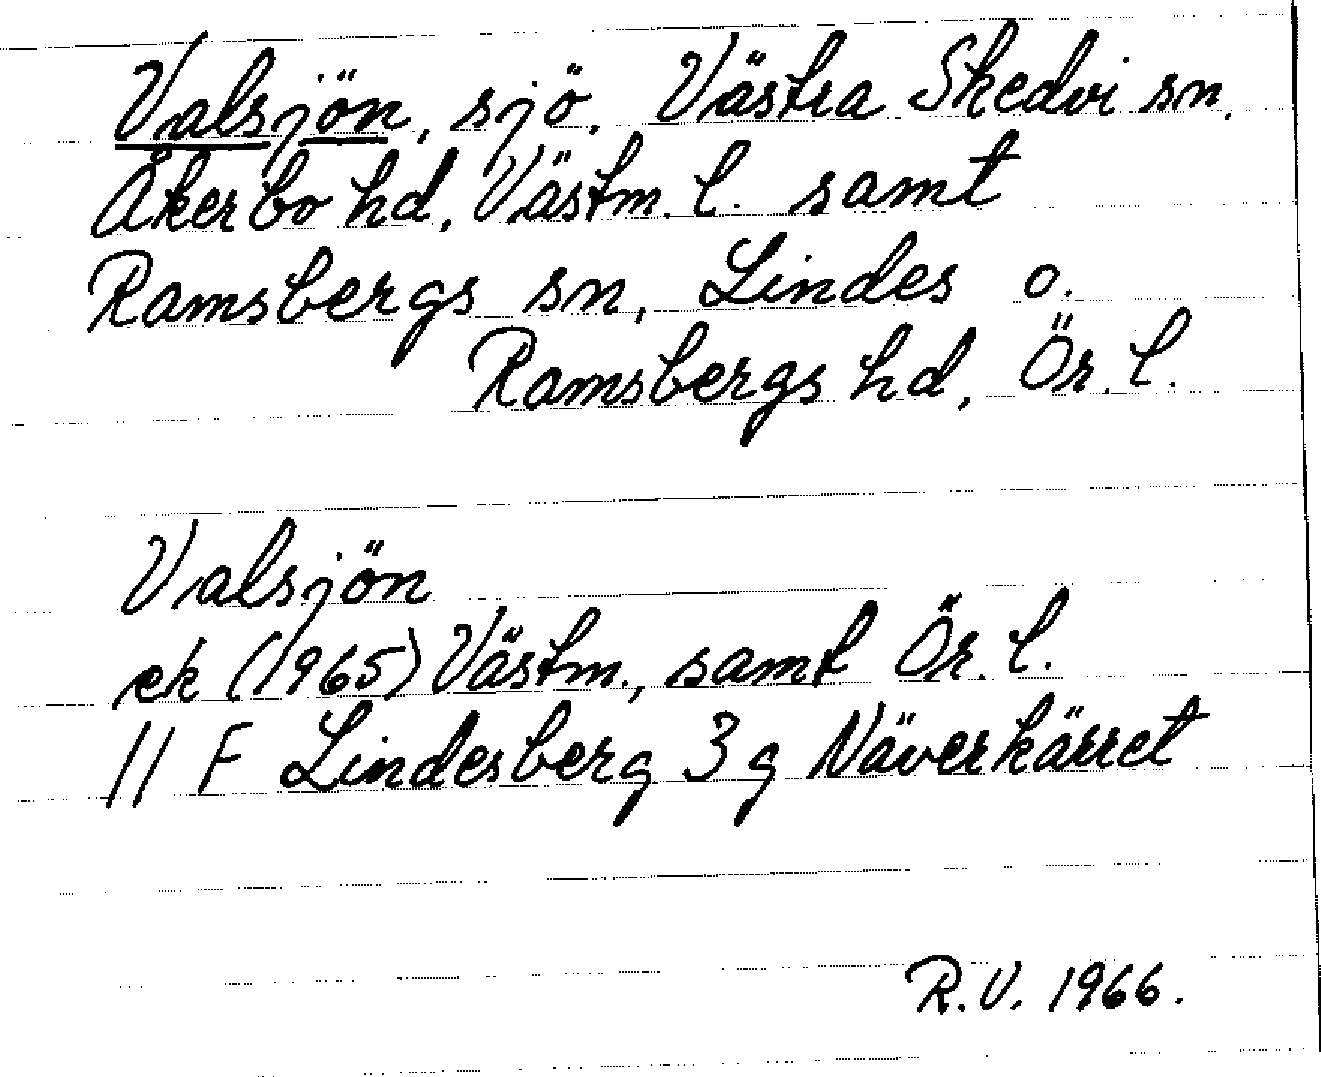 Valsjön, sjö. Västra Skedvi sn.
Åkerbo hd, Västm. l. samt
Ramsbergs sn, Lindes o.
Ramsbergs hd, Ör. l.
Valsjön
ek (1965) Västm., samt Ör. l.
// F Lindesberg 3 g Näverkärret
R.V. 1966.